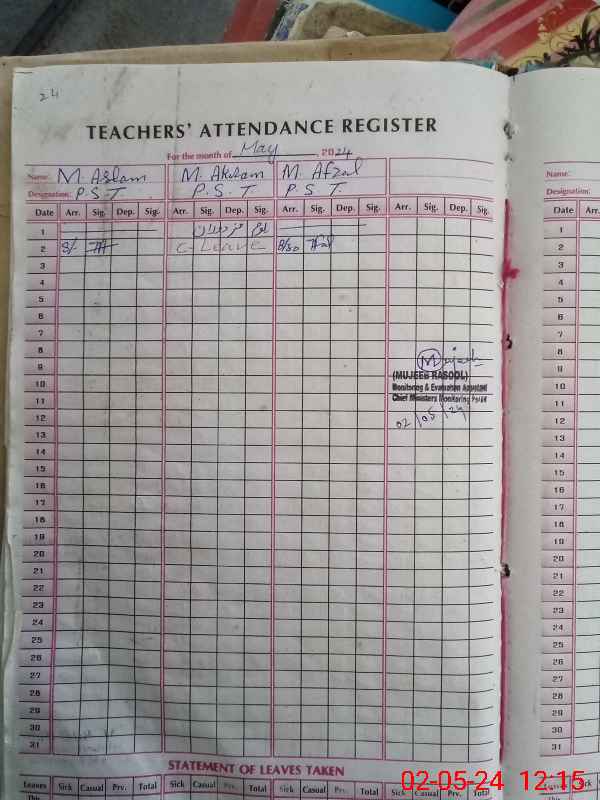 24
TEACHERS' ATTENDANCE REGISTER
For the month of May, 2024
Name: M. Aslam M. Akram M. Afzal Name:
Designation: P.S.T. P.S.T. P.S.T. Designation:
Date Arr. Sig. Dep. Sig. Arr. Sig. Dep. Sig. Arr. Sig. Dep. Sig. Arr. Sig. Dep. Sig. Date Arr.
1 یوم مزدوراں 1
2 8/- C-Leave 8/30 2
3 3
4 4
5 5
6 6
7 7
8 8
9 9
(MUJEEB RASOOL)
10 Monitoring & Evaluation Assistant 10
11 Chief Ministers Monitoring Force 11
12 02/05/24 12
13 13
14 14
15 15
16 16
17 17
18 18
19 19
20 20
21 21
22 22
23 23
24 24
25 25
26 26
27 27
28 28
29 29
30 30
31 31
STATEMENT OF LEAVES TAKEN
Leaves Sick Casual Prv. Total Sick Casual Prv. Total Sick Casual Prv. Total Sick Casual Prv. Total Leaves
This
02-05-24 12:15